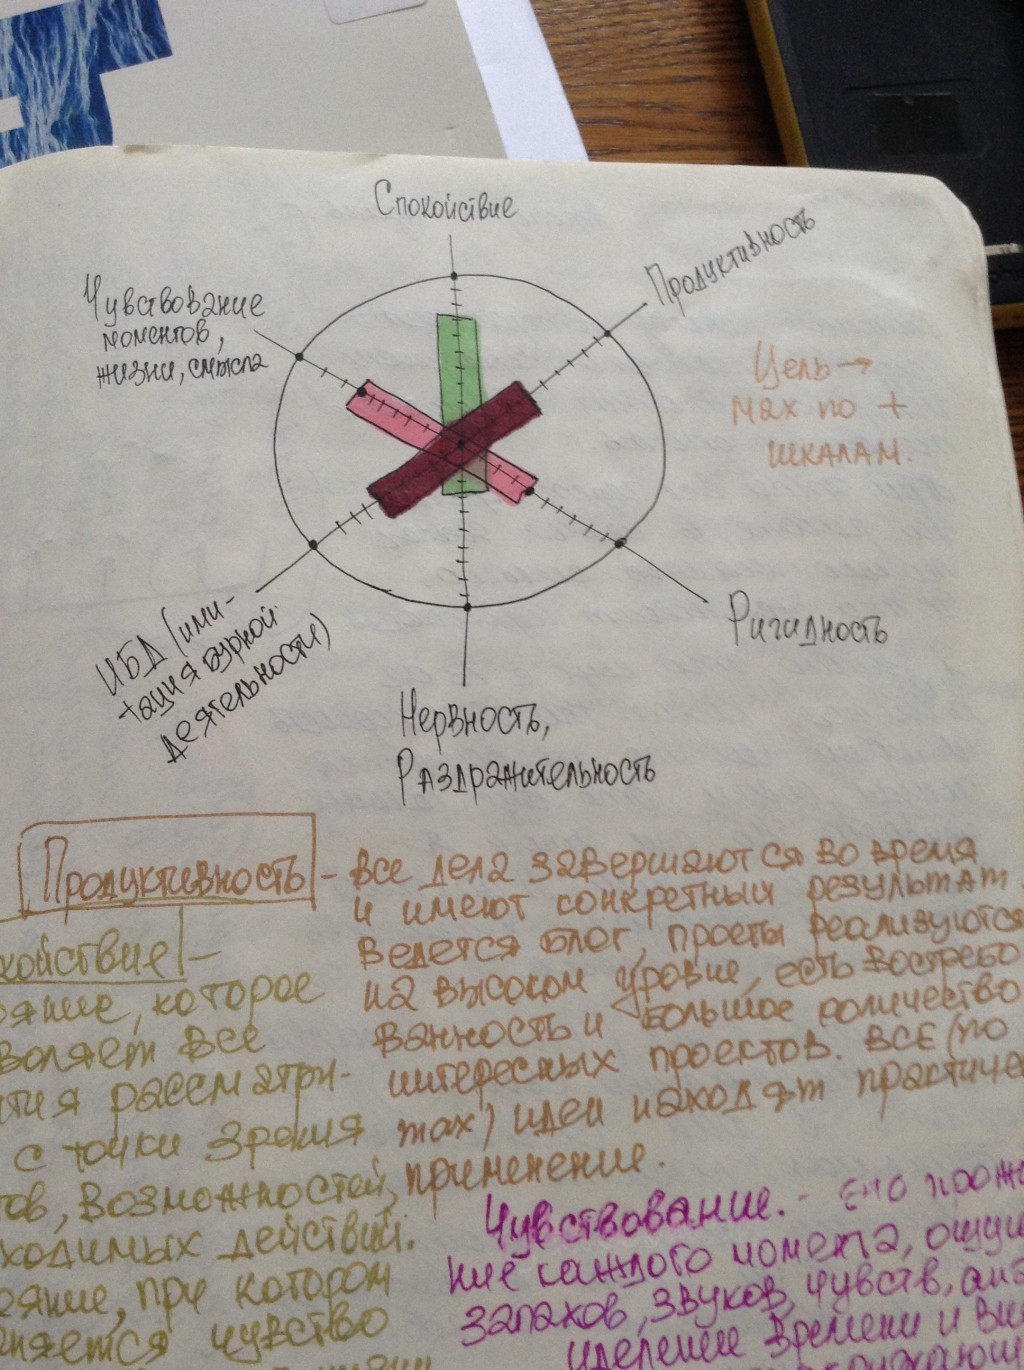 Спокойствие
Продуктивность
Чувствование
моментов,
жизни, смысла
Цель →
мах по +
шкалам.
ИБД (ими-
тация бурной
деятельности)
Ригидность
Нервность,
Раздражительность
Продуктивность - все дела завершаются во время
и имеют конкретный результат
Ведется блог, проеты реализуются
на высоком уровне, есть востребо
ванность и большое количество
интересных проектов. ВСЕ (по
max) идеи находят практиче
применение.
койствие -
ояние, которое
воляет все
тия рассматри-
с точки зрения
тов, возможностей,
ходимых действий.
ояние, при котором
няется чувство
Чувствование. - это прожи
ние каждого момета, ощущ
запахов, звуков, чувств,
уделение времени и